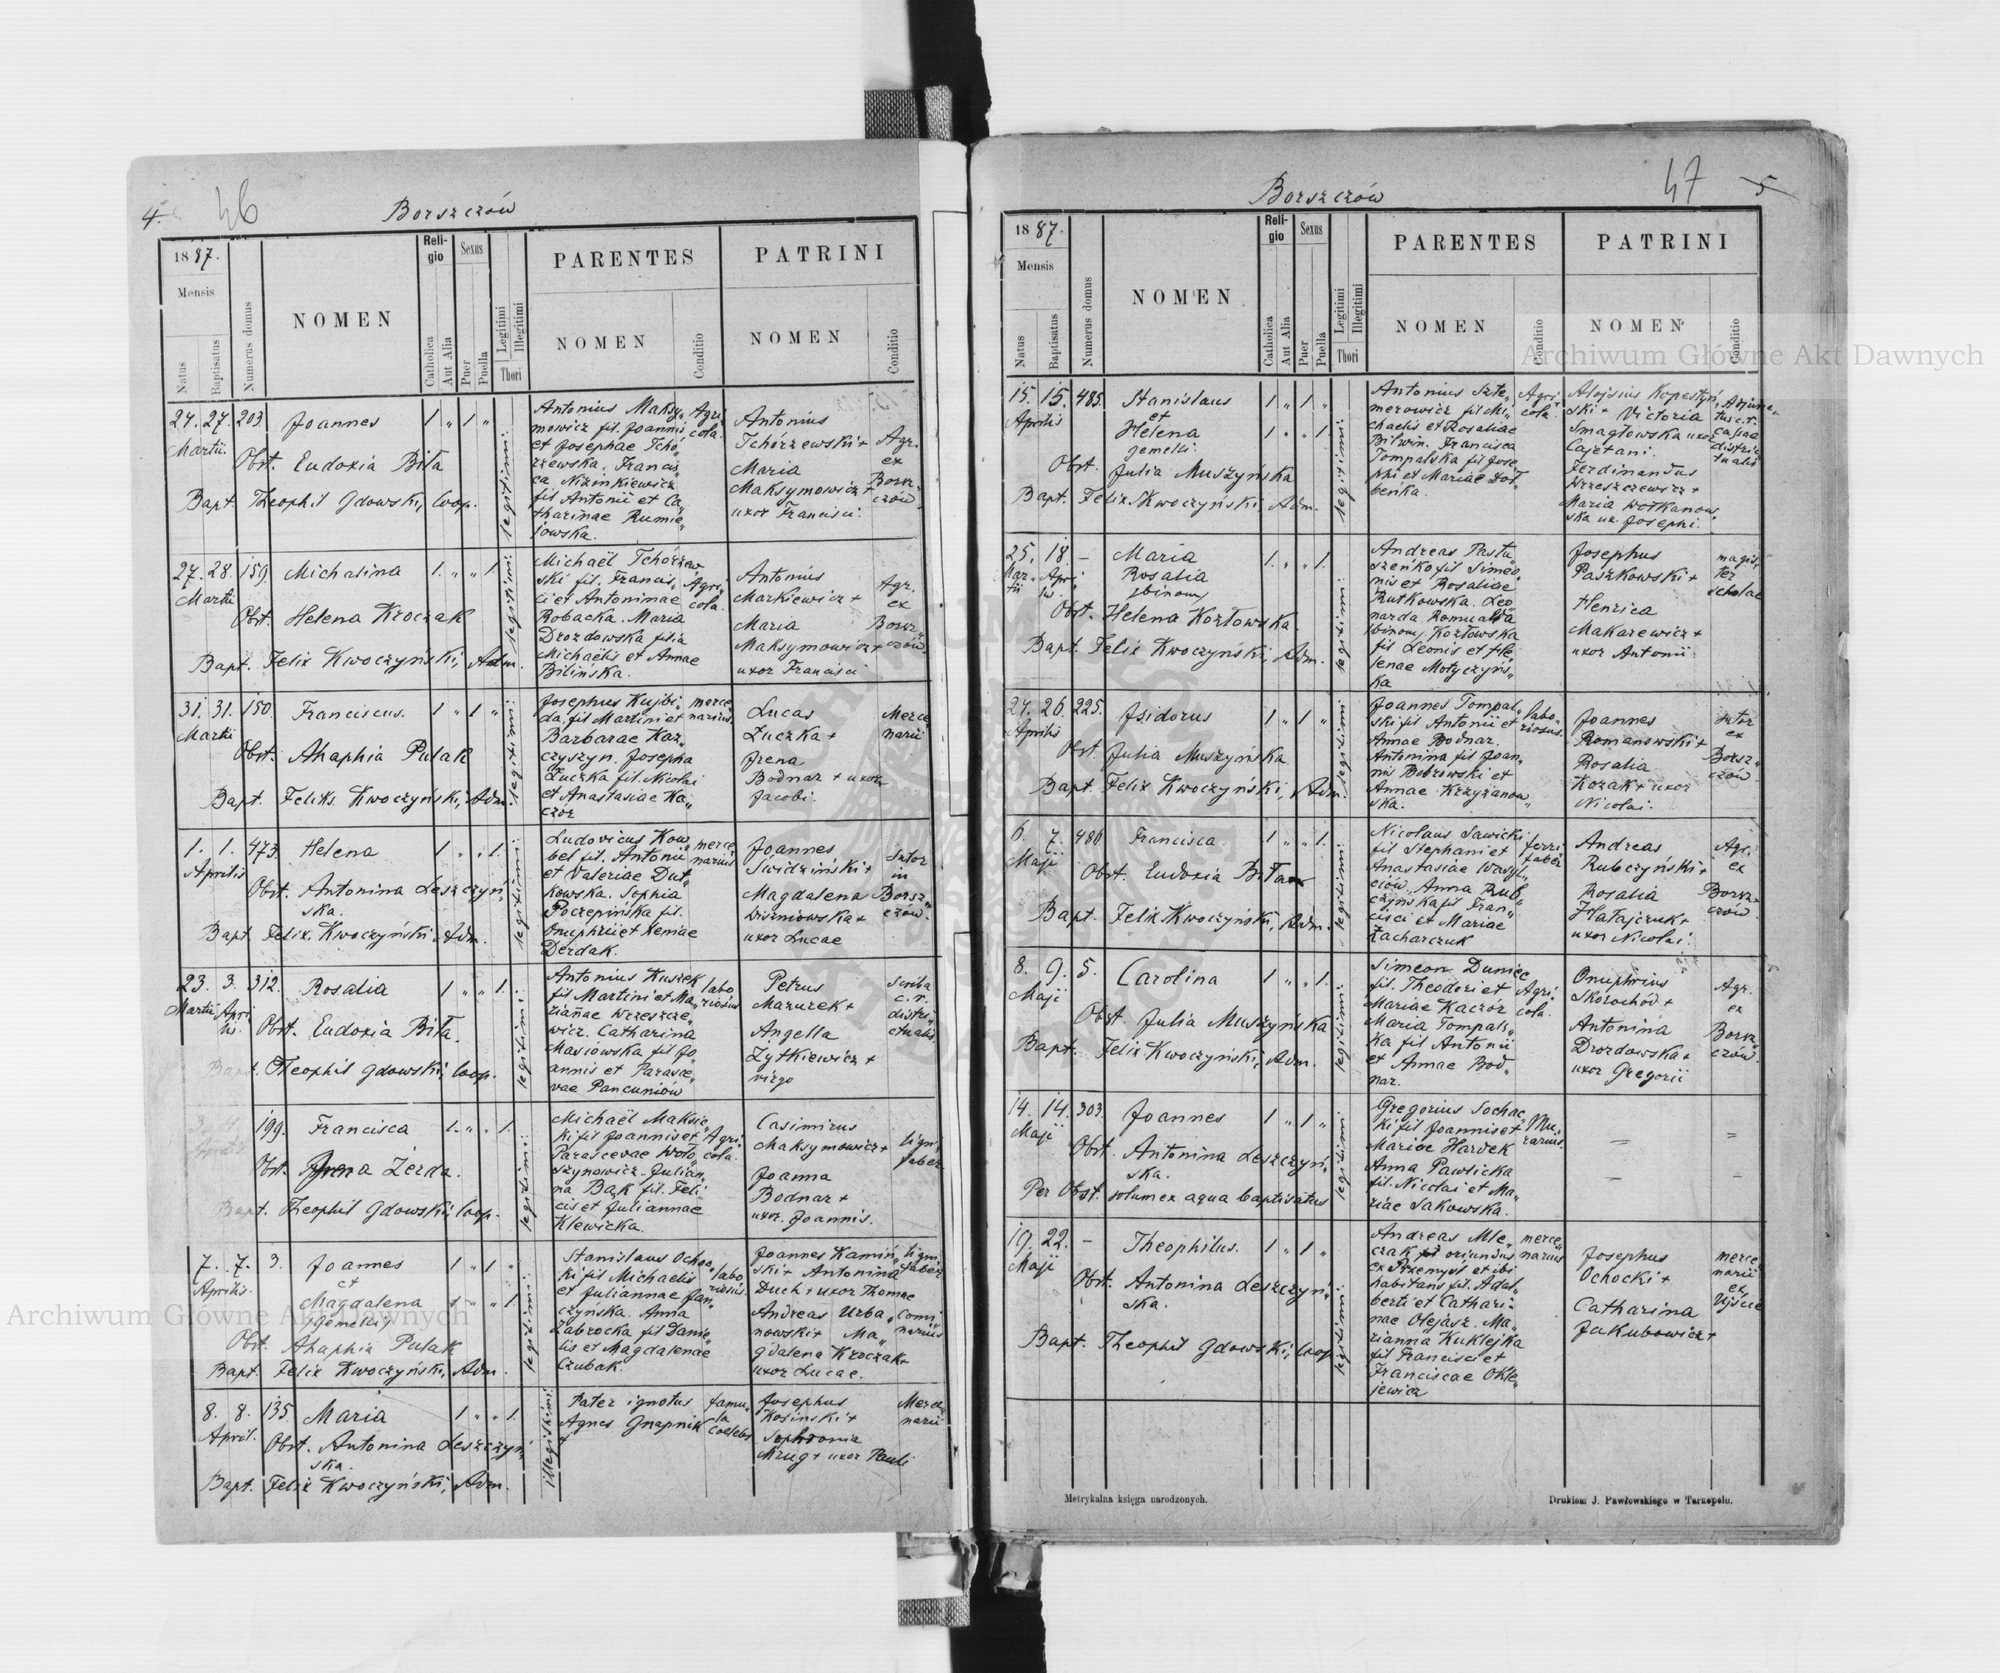 4.
46
Borszczów
1887.
Mensis
Natus
Baptisatus
Numerus domus
NOMEN
Religio
Catholica
Aut Alia
Sexus
Puer
Puella
Legitimi
Illegitimi
Thori
PARENTES
NOMEN
Conditio
PATRINI
NOMEN
Conditio
27. 27. 203. Joannes 1 " 1 "
Martii.
Obst. Eudoxia Biła
Bapt. Theophil Gdowski, Coop.
legitimi.
Antonius Maksy„
mowicz fil. Joannis
et Josephae Tchó„
rzewska. Francis„
ca Niżnikiewicz
fil Antonii et Ca„
tharinae Rumie„
jowska.
Agri
cola.
Antonius
Tchórzewski +
Maria
Maksymowicz +
uxor Francisci.
Agr.
ex
Borsz„
czów.
27. 28. 159. Michalina 1. " " 1.
Martii
Obst. Helena Kroczak
Bapt. Felix Kwoczyński, Adm.
legitimi.
Michaël Tchórzew
ski fil. Francis„
ci et Antoninae
Robacka. Maria
Drozdowska filia
Michaëlis et Annae
Bilińska.
Agri„
cola.
Antonius
Markiewicz +
Maria
Maksymowicz +
uxor Francisci
Agr.
ex
Borsz„
czów.
31. 31. 150. Franciscus. 1 " 1 "
Martii
Obst. Ahaphia Pulak
Bapt. Feliks. Kwoczyński, Adm.
legitimi.
Josephus Kujbi„
da, fil Martini et
Barbarae Kar„
czyszyn. Josepha
Łuczka fil. Nicolai
et Anastasiae Ka„
czor
merce„
narius.
Lucas
Łuczka +
Irena
Bodnar + uxor
Jacobi.
Merce„
narii
1. 1. 473. Helena 1 " " 1.
Aprilis
Obst. Antonina Leszczyń„
ska.
Bapt. Felix. Kwoczyński Adm.
legitimi.
Ludovicus Kow„
bel fil. Antonii
et Valeriae Dut„
kowska. Sophia
Poczepińska fil.
Onuphrii et Xeniae
Derdak.
merce„
narius
Joannes
Świdziński +
Magdalena
Wiszniowska +
uxor Lucae
Sutor
in
Borsz„
czów.
23. 3. 312. Rosalia 1 " " 1.
Martii Apri
lis.
Obst. Eudoxia Biła.
Bapt. Theophil Gdowski, Coop.
legitimi.
Antonius Kuszek
fil Martini et Ma„
rianae Wrzeszcze„
wicz. Catharina
Masiowska fil Jo„
annis et Parasce„
vae Pancuniów
labo„
riosus
Petrus
Mazurek +
Angella
Żytkiewicz +
virgo
Scriba
c. r.
distri„
ctualis
199. Francisca 1. " " 1.
Aprilis
Obst. Anna Żerda.
Bapt. Theophil Gdowski, Coop.
legitimi.
Michaël Maksie„
ki fil Joannis et
Parascevae Woło„
szynowicz. Julian„
na Bąk fil. Feli„
cis et Juliannae
Klewicka.
Agri„
cola.
Casimirus
Maksymowicz +
Joanna
Bodnar +
uxor. Joannis.
lign.
faber.
7. 7. 3. Joannes 1 " 1 "
Aprilis.
et
Magdalena 1 " " 1.
(gemelli)
Obst. Ahaphia Pulak
Bapt. Felix Kwoczyński, Adm.
legitimi.
Stanislaus Ochoc„
ki fil Michaëlis
et Juliannae Jan„
czyńska. Anna
Zabrocka fil Danie„
lis et Magdalenae
Czubak.
labo„
riosus.
Joannes Kamiń„
ski + Antonina
Duch + uxor Thomae
Andreas Urba„
nowski + Ma„
gdalena Kroczak +
uxor Lucae.
lign.
faber
Comi„
narius
8. 8. 135. Maria 1 " " 1.
April.
Obst. Antonina Leszczyń„
ska.
Bapt. Felix Kwoczyński, Adm.
illegitimi.
Pater ignotus
Agnes Gnapnik
famu„
la
coelebs
Josephus
Kosiński +
Sophronia
Mzug + uxor Pauli
Merce„
narii
47
5
Borszczów
1887.
Mensis
Natus
Baptisatus
Numerus domus
NOMEN
Religio
Catholica
Aut Alia
Sexus
Puer
Puella
Legitimi
Illegitimi
Thori
PARENTES
NOMEN
Conditio
PATRINI
NOMEN
Conditio
15. 15. 485. Stanislaus 1 " 1 "
Aprilis
et
Helena 1 " " 1.
gemelli.
Obst. Julia Muszyńska
Bapt. Felix. Kwoczyński, Adm.
legitimi.
Antonius Szte„
merowicz fil Mi„
chaelis et Rosaliae
Bilwin. Francisca
Tompalska fil Jose„
phi et Mariae Doł„
beńka.
Agri„
cola.
Alojsius Kopestyń„
ski + Victoria
Smagłowska uxor
Cajetani.
Ferdinandus
Wrzeszczewicz +
Maria Wołkanow„
ska ux. Josephi.
Adjunc„
tus c. r.
cassae
distric„
tualis
25. 18. – Maria 1. " " 1.
Mar„
tii
Apri„
lis.
Rosalia
(binom)
Obst. Helena Kozłowska.
Bapt. Felix Kwoczyński, Adm.
legitimi.
Andreas Pastu„
szeńko fil Simeo„
nis et Rosaliae
Rutkowska. Leo„
narda Romualda
(binom) Kozłowska
fil Leonis et He„
lenae Motyczyńs„
ka
Josephus
Paszkowski +
Henrica
Makarewicz +
uxor Antonii
magis„
ter
scholae
24. 26. 225. Isidorus 1 " 1 "
Aprilis
Obst. Julia Muszyńska
Bapt. Felix Kwoczyński, Adm.
legitimi.
Joannes Tompal„
ski fil Antonii et
Annae Bodnar.
Antonina fil Joan„
nis Bobrowski et
Annae Krzyżanow„
ska.
labo„
riosus.
Joannes
Romanowski +
Rosalia
Kozak + uxor
Nicolai.
Sutor
ex
Borsz„
czów
6. 7. 486 Francisca 1 " " 1.
Maji
Obst. Eudoxia Biła
Bapt. Felix. Kwoczyński, Adm.
legitimi.
Nicolaus Sawicki
fil Stephani et
Anastasiae Wasyl„
ciów. Anna Rub„
czyńska fil Fran„
cisci et Mariae
Zacharczuk
ferri
faber
Andreas
Rubczyński +
Rosalia
Hałajczuk +
uxor Nicolai.
Agr.
ex
Borsz„
czów.
8. 9. 5. Carolina 1 " " 1.
Maji
Obst. Julia Muszyńska
Bapt. Felix Kwoczyński, Adm.
legitimi.
Simeon Duniec
fil. Theodori et
Mariae Kaczór
Maria Tompals„
ka fil Antonii
et Annae Bod„
nar.
Agri„
cola.
Onuphrius
Skorochód +
Antonina
Drozdowska +
uxor Gregorii
Agr.
ex
Borsz„
czów.
14. 14. 303. Joannes 1 " 1 "
Maji
Obst. Antonina Leszczyń„
ska.
Per Obst. solum ex aqua baptisatus
legitimi.
Gregorius Sochac„
ki fil Joannis et
Mariae Hardek
Anna Pawlicka
fil. Nicolai et Ma„
riae Sakowska.
Mu„
rarius.
19. 22. – Theophilus. 1 " 1 "
Maji
Obst. Antonina Leszczyń„
ska.
Bapt. Theophil Gdowski, Coop.
legitimi.
Andreas Mle„
czak oriundus
ex Przemyśl et ibi
habitans fil. Adal„
berti et Cathari„
nae Olejasz. Ma„
rianna Kuklejka
fil Francisci et
Franciscae Okle„
jewicz
merce„
narius
Josephus
Ochocki +
Catharina
Jakubowicz +
merce„
narii
ex
Ujście
Metrykalna księga narodzonych.
Drukiem J. Pawłowskiego w Tarnopolu.
Archiwum Główne Akt Dawnych
Archiwum Główne Akt Dawnych